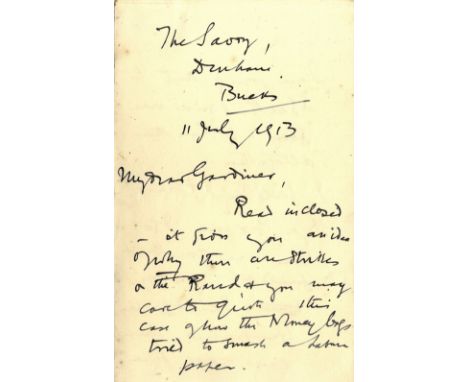 The Savoy,
Denham.
Bucks
11 July 1913
My dear Gardiner,
Read inclosed
– it gives you an idea
of why there are strikes
on the Rand & you may
care to quote this
case of how the Money bags
tried to smash a Labour
paper.